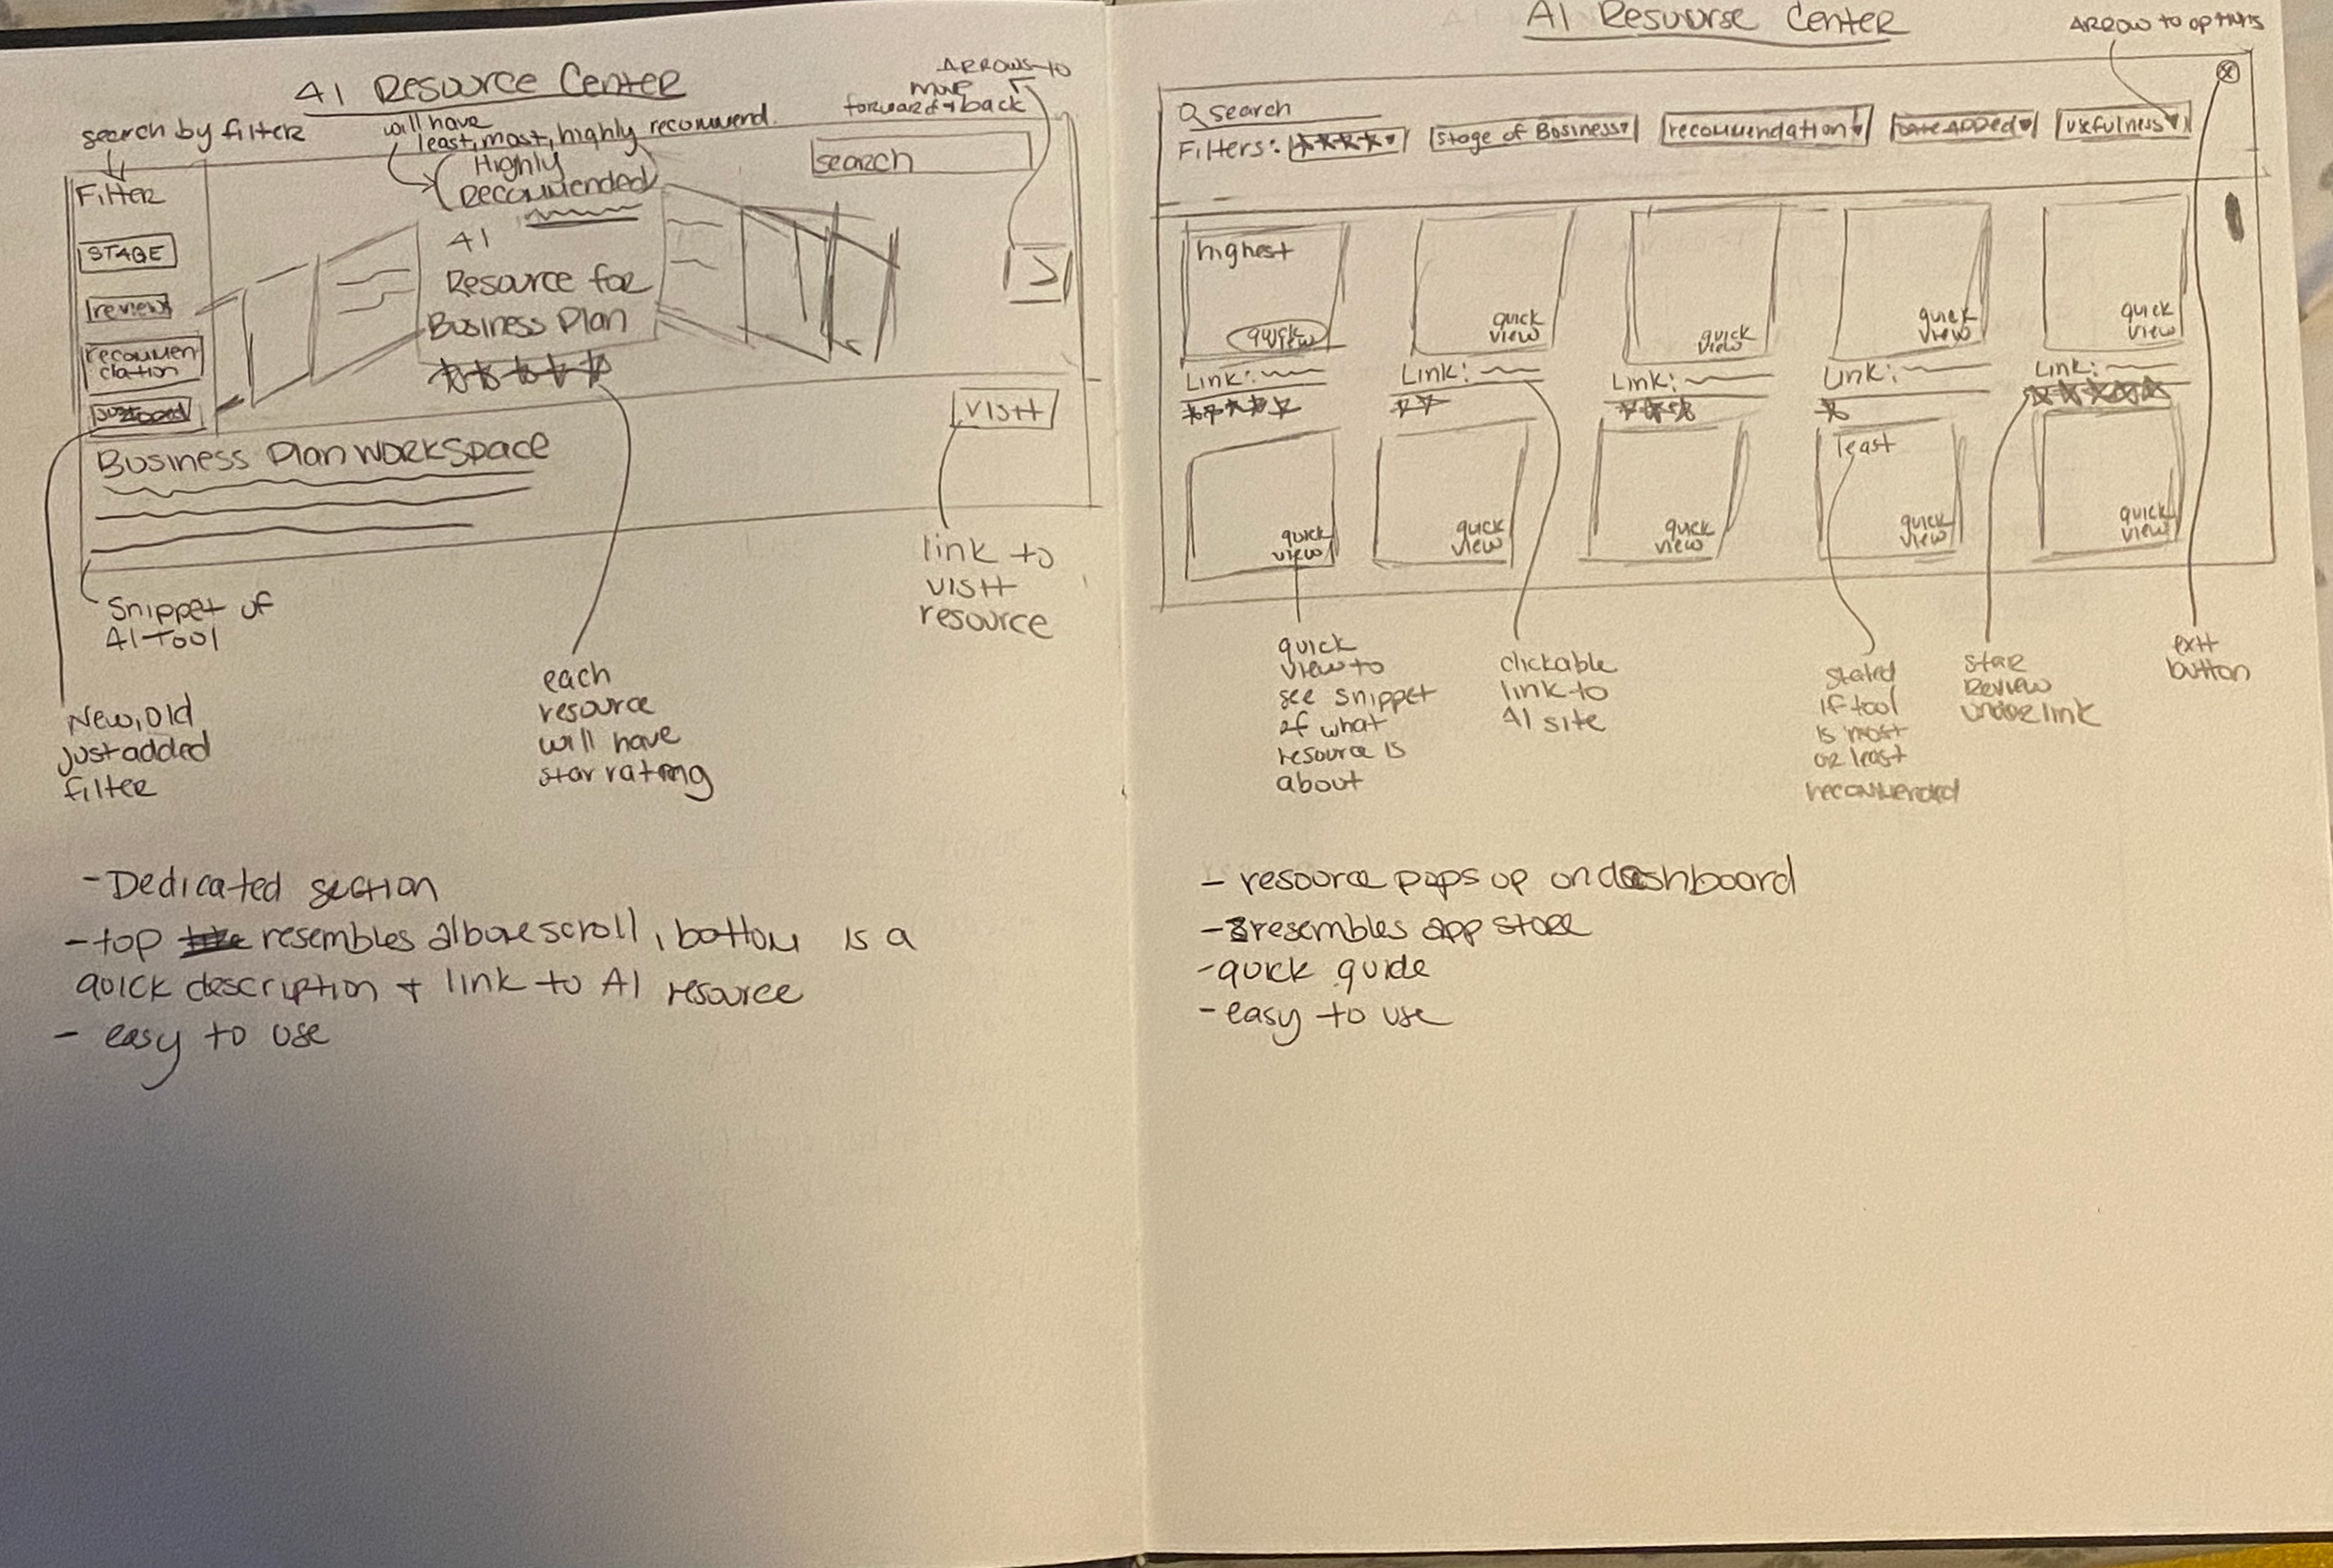 AI Resource Center
ARROWS to
move
forward + back
search by filter
will have
least, most, highly recommend.
Highly
Recommended
search
Filter
STAGE
review
recommen
dation
just added
AI
Resource for
Business Plan
>
VISIT
Business Plan workspace
Snippet of
AI Tool
New, old
just added
filter
each
resource
will have
star rating
link to
visit
resource
- Dedicated section
- top resembles albume scroll, bottom is a
quick description + link to AI resource
- easy to use
AI Resource Center
ARROW to options
search
Filters: stage of Business recommendation DATE ADDED usefulness
highest
quick view
quick view
quick view
quick view
quick view
Link:
Link:
Link:
Link:
Link:
least
quick view
quick view
quick view
quick view
quick view
quick
view to
see snippet
of what
resource is
about
clickable
link to
AI site
stated
if tool
is most
or least
recommended
star
Review
under link
exit
button
- resource pops up on dashboard
- resembles app store
- quick guide
- easy to use